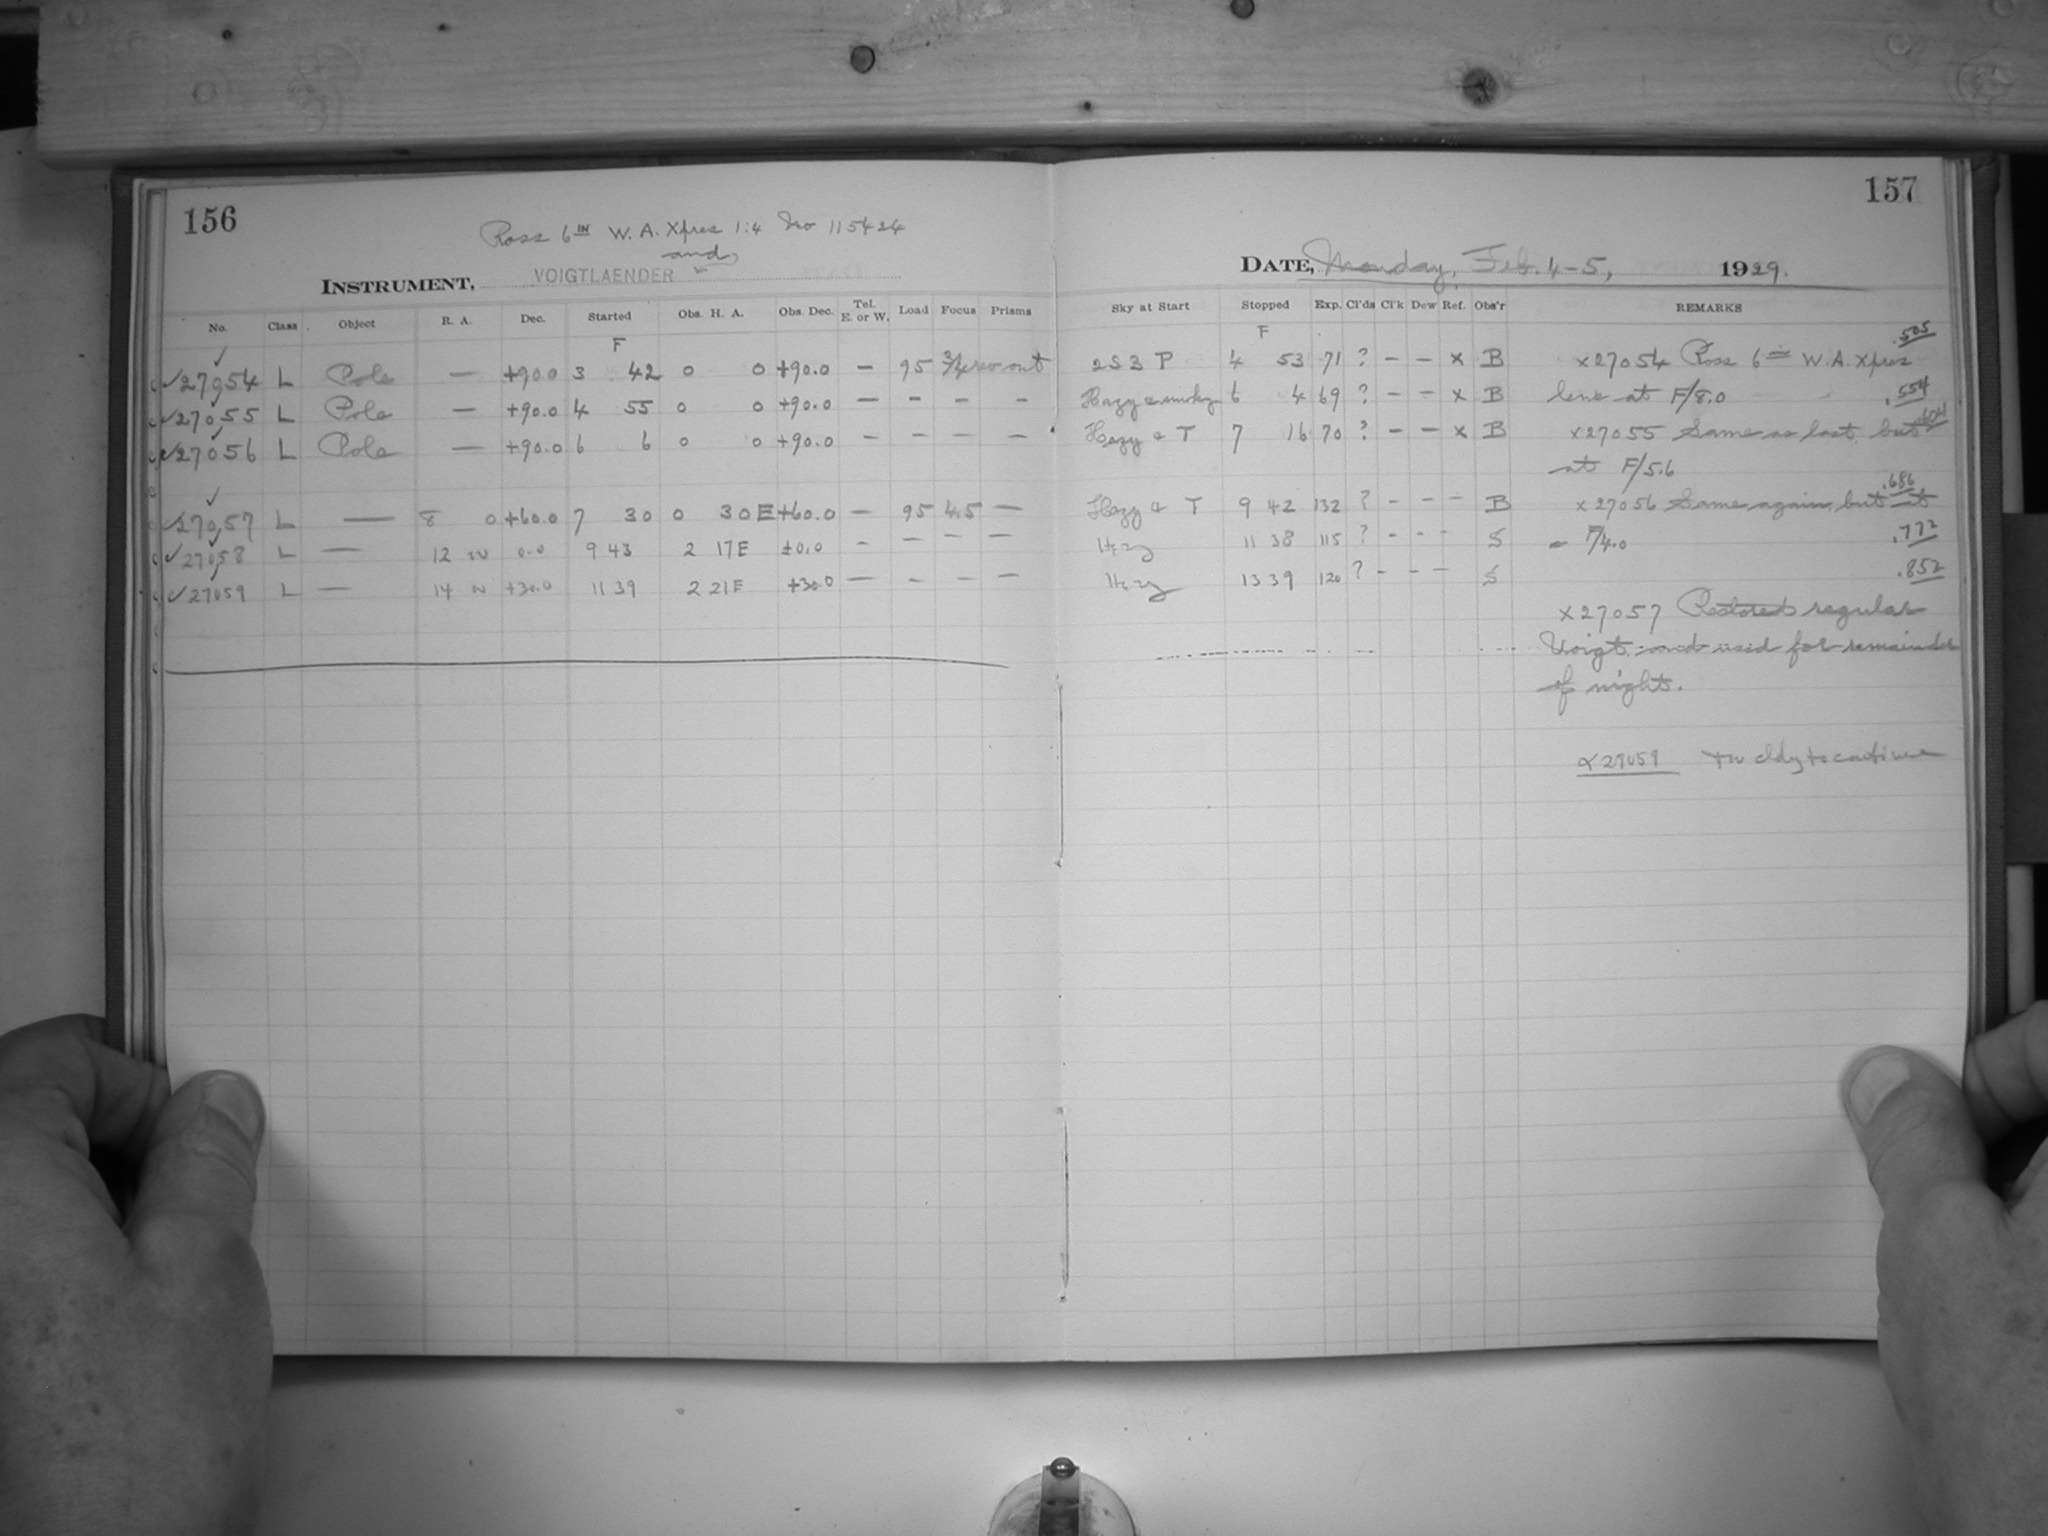 156
157
Ross 6 IN W. A. Xpres 1:4 No 115424
and
INSTRUMENT, VOIGTLAENDER
DATE, Monday, Feb. 4-5, 1929.
No. Class Object R. A. Dec. Started Obs. H. A. Obs. Dec. Tel. E. or W. Load Focus Prisms
Sky at Start Stopped Exp. Cl'ds Cl'k Dew Ref. Obs'r REMARKS
F
F
.505
✓27054 L Pole — +90.0 3 42 0 0 +90.0 — 95 out
2S3P 4 53 71 ? – – x B x27054 Ross 6 in W. A. Xpres
✓27055 L Pole — +90.0 4 55 0 0 +90.0 — – – –
Hazy & smoky 6 4 69 ? – – x B lens at F/8.0 .554
✓27056 L Pole — +90.0 6 6 0 0 +90.0 – – – –
Hazy & T 7 16 70 ? – – x B x27055 Same as last, but .604
at F/5.6
✓27057 L — 8 0 +60.0 7 30 0 30E +60.0 — 95 4.5 —
Hazy & T 9 42 132 ? – – – B x27056 Same again, but at .686
✓27058 L — 12 0.0 9 43 2 17E ±0.0 – – – –
Hazy 11 38 115 ? – – – S F/4.0 .772
✓27059 L — 14 +30.0 11 39 2 21E +30.0 — – – –
Hazy 13 39 120 ? – – – S .852
x27057 Restored regular
Voigt. and used for remainder
of night.
x27059 Too cldy to continue